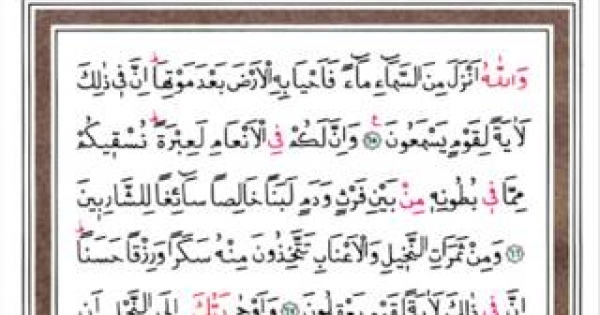 وَاللّٰهُ اَنْزَلَ مِنَ السَّمَٓاءِ مَٓاءً فَاَحْيَا بِهِ الْاَرْضَ بَعْدَ مَوْتِهَاۜ اِنَّ ف۪ي ذٰلِكَ
لَاٰيَةً لِقَوْمٍ يَسْمَعُونَ۟ ﴿٦٥﴾ وَاِنَّ لَكُمْ فِي الْاَنْعَامِ لَعِبْرَةًۜ نُسْق۪يكُمْ
مِمَّا ف۪ي بُطُونِه۪ مِنْ بَيْنِ فَرْثٍ وَدَمٍ لَبَنًا خَالِصًا سَٓائِغًا لِلشَّارِب۪ينَ
﴿٦٦﴾ وَمِنْ ثَمَرَاتِ النَّخ۪يلِ وَالْاَعْنَابِ تَتَّخِذُونَ مِنْهُ سَكَرًا وَرِزْقًا حَسَنًاۜ
اِنَّ ف۪ي ذٰلِكَ لَاٰيَةً لِقَوْمٍ يَعْقِلُونَ ﴿٦٧﴾ وَاَوْحٰى رَبُّكَ اِلَى النَّحْلِ اَنِ